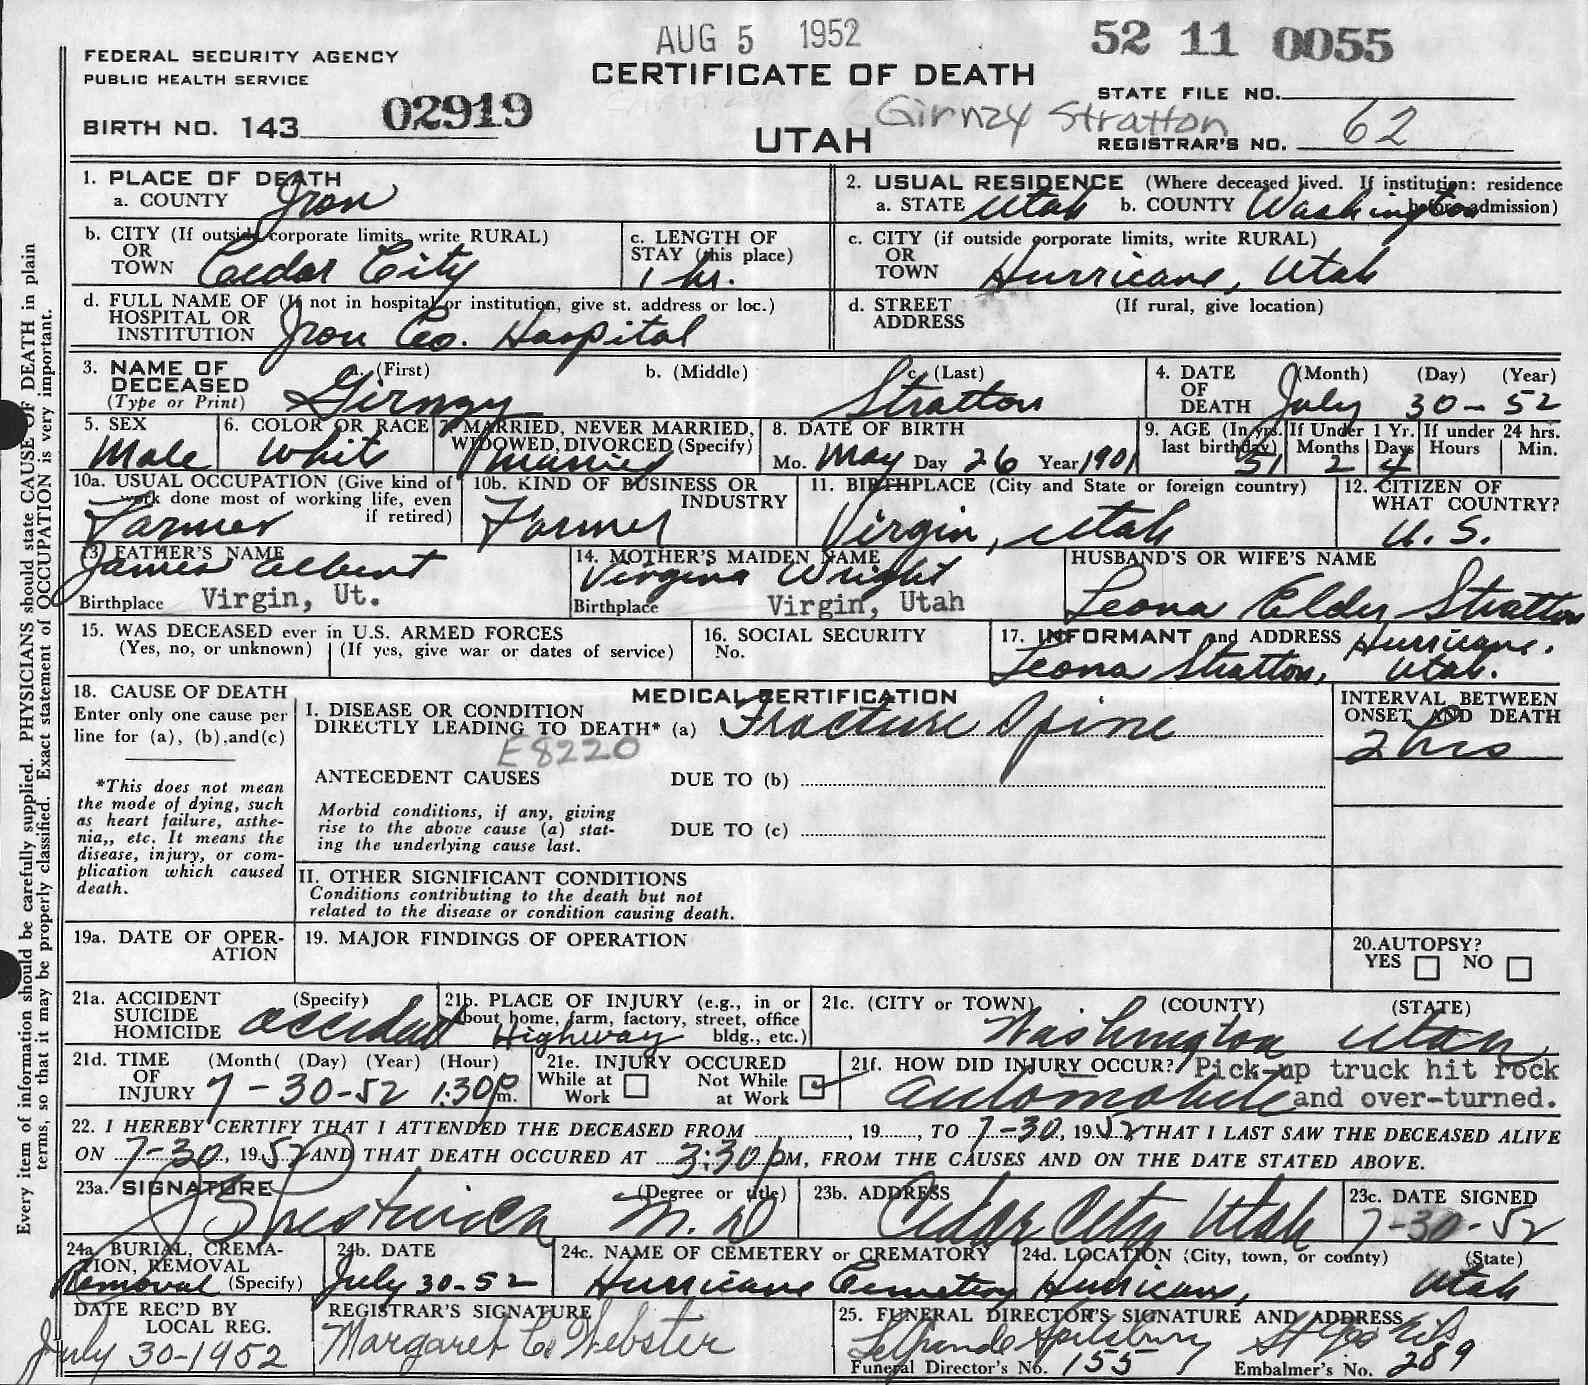 AUG 5 1952
52 11 0055
FEDERAL SECURITY AGENCY
PUBLIC HEALTH SERVICE
CERTIFICATE OF DEATH
STATE FILE NO.
BIRTH NO. 143 02919
UTAH
Girnzy Stratton
REGISTRAR'S NO. 62
Every item of information should be carefully supplied. PHYSICIANS should state CAUSE OF DEATH in plain
terms, so that it may be properly classified. Exact statement of OCCUPATION is very important.
1. PLACE OF DEATH
a. COUNTY Iron
2. USUAL RESIDENCE (Where deceased lived. If institution: residence
before admission)
a. STATE Utah b. COUNTY Washington
b. CITY (If outside corporate limits, write RURAL)
OR
TOWN Cedar City
c. LENGTH OF
STAY (this place)
1 hr.
c. CITY (if outside corporate limits, write RURAL)
OR
TOWN Hurricane, Utah
d. FULL NAME OF (If not in hospital or institution, give st. address or loc.)
HOSPITAL OR
INSTITUTION Iron Co. Hospital
d. STREET (If rural, give location)
ADDRESS
3. NAME OF
DECEASED
(Type or Print)
a. (First) b. (Middle) c. (Last)
Girnzy Stratton
4. DATE
OF
DEATH
(Month) (Day) (Year)
July 30-52
5. SEX
Male
6. COLOR OR RACE
Whit
7. MARRIED, NEVER MARRIED,
WIDOWED, DIVORCED (Specify)
Married
8. DATE OF BIRTH
Mo. May Day 26 Year 1901
9. AGE (In yrs.
last birthday)
51
If Under 1 Yr.
Months Days
2 4
If under 24 hrs.
Hours Min.
10a. USUAL OCCUPATION (Give kind of
work done most of working life, even
if retired)
Farmer
10b. KIND OF BUSINESS OR
INDUSTRY
Farmer
11. BIRTHPLACE (City and State or foreign country)
Virgin, Utah
12. CITIZEN OF
WHAT COUNTRY?
U. S.
13. FATHER'S NAME
James Albert
Birthplace Virgin, Ut.
14. MOTHER'S MAIDEN NAME
Virgina Wright
Birthplace Virgin, Utah
HUSBAND'S OR WIFE'S NAME
Leona Elder Stratton
15. WAS DECEASED ever in U.S. ARMED FORCES
(Yes, no, or unknown) (If yes, give war or dates of service)
16. SOCIAL SECURITY
No.
17. INFORMANT and ADDRESS Hurricane.
Leona Stratton, Utah.
18. CAUSE OF DEATH
Enter only one cause per
line for (a), (b), and (c)
*This does not mean
the mode of dying, such
as heart failure, asthe-
nia,, etc. It means the
disease, injury, or com-
plication which caused
death.
MEDICAL CERTIFICATION
I. DISEASE OR CONDITION
DIRECTLY LEADING TO DEATH* (a) Fracture Spine
E8220
ANTECEDENT CAUSES DUE TO (b)
Morbid conditions, if any, giving
rise to the above cause (a) stat-
ing the underlying cause last.
DUE TO (c)
II. OTHER SIGNIFICANT CONDITIONS
Conditions contributing to the death but not
related to the disease or condition causing death.
INTERVAL BETWEEN
ONSET AND DEATH
2 hrs
19a. DATE OF OPER-
ATION
19. MAJOR FINDINGS OF OPERATION
20. AUTOPSY?
YES NO
21a. ACCIDENT (Specify)
SUICIDE
HOMICIDE accident
21b. PLACE OF INJURY (e.g., in or
about home, farm, factory, street, office
bldg., etc.)
Highway
21c. (CITY or TOWN) (COUNTY) (STATE)
Washington Utah
21d. TIME (Month( (Day) (Year) (Hour)
OF
INJURY 7-30-52 1:30 p m.
21e. INJURY OCCURED
While at
Work
Not While
at Work
21f. HOW DID INJURY OCCUR? Pick-up truck hit rock
automobile and over-turned.
22. I HEREBY CERTIFY THAT I ATTENDED THE DECEASED FROM , 19 , TO 7-30, 1952, THAT I LAST SAW THE DECEASED ALIVE
ON 7-30, 1952 AND THAT DEATH OCCURED AT 3:30 p M, FROM THE CAUSES AND ON THE DATE STATED ABOVE.
23a. SIGNATURE (Degree or title)
Prestwich M. D
23b. ADDRESS
Cedar City Utah
23c. DATE SIGNED
7-30-52
24a. BURIAL, CREMA-
TION, REMOVAL
Removal (Specify)
24b. DATE
July 30-52
24c. NAME OF CEMETERY or CREMATORY
Hurricane Cemetery
24d. LOCATION (City, town, or county) (State)
Hurricane, Utah
DATE REC'D BY
LOCAL REG.
July 30-1952
REGISTRAR'S SIGNATURE
Margaret C. Webster
25. FUNERAL DIRECTOR'S SIGNATURE AND ADDRESS
Spilsbury St Geo
Funeral Director's No. 155 Embalmer's No. 289